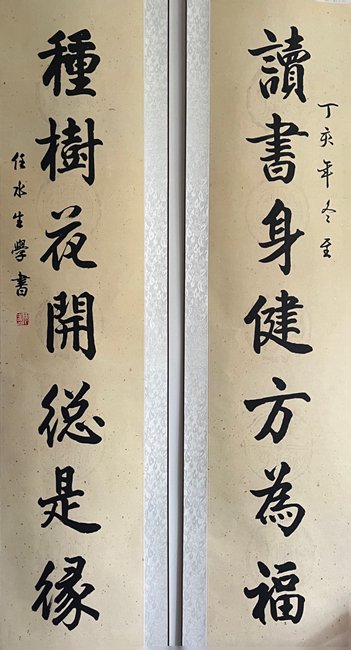 丁亥年冬至
讀書身健方為福
種樹花開総是緣
任水生學書